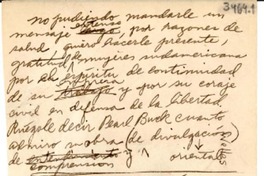 3969.1
no pudiendo mandarle un
mensaje extenso por razones de
salud, quiero hacerle presente,
gratitud mujeres sudamericanas
por el espíritu de continuidad
de su obra y por su coraje
civil en defensa de la libertad.
Ruégole decir Pearl Buck cuanto
admiro su obra de divulgación
de y valores
comprensión orientales